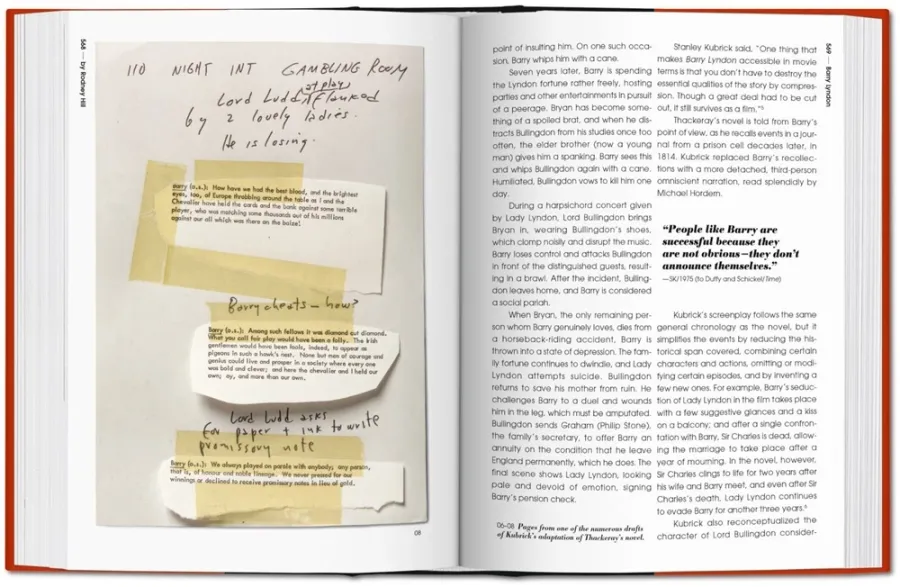 568 — by Rodney Hill
110 NIGHT INT GAMBLING ROOM
at play
Lord Ludd flanked
by 2 lovely ladies.
He is losing.
Barry (o.s.): How have we had the best blood, and the brightest
eyes, too, of Europe throbbing around the table as I and the
Chevalier have held the cards and the bank against some terrible
player, who was matching some thousands out of his millions
against our all which was there on the baize!
Barry cheats — how?
Barry (o.s.): Among such fellows it was diamond cut diamond.
What you call fair play would have been a folly. The Irish
gentlemen would have been fools, indeed, to appear as
pigeons in such a hawk's nest. None but men of courage and
genius could live and prosper in a society where every one
was bold and clever; and here the chevalier and I held our
own; ay, and more than our own.
Lord Ludd asks
for paper + ink to write
promissory note
Barry (o.s.): We always played on parole with anybody; any person,
that is, of honour and noble lineage. We never pressed for our
winnings or declined to receive promissory notes in lieu of gold.
08
point of insulting him. On one such occa-
sion, Barry whips him with a cane.
Seven years later, Barry is spending
the Lyndon fortune rather freely, hosting
parties and other entertainments in pursuit
of a peerage. Bryan has become some-
thing of a spoiled brat, and when he dis-
tracts Bullingdon from his studies once too
often, the elder brother (now a young
man) gives him a spanking. Barry sees this
and whips Bullingdon again with a cane.
Humiliated, Bullingdon vows to kill him one
day.
During a harpsichord concert given
by Lady Lyndon, Lord Bullingdon brings
Bryan in, wearing Bullingdon's shoes,
which clomp noisily and disrupt the music.
Barry loses control and attacks Bullingdon
in front of the distinguished guests, result-
ing in a brawl. After the incident, Bulling-
don leaves home, and Barry is considered
a social pariah.
When Bryan, the only remaining per-
son whom Barry genuinely loves, dies from
a horseback-riding accident, Barry is
thrown into a state of depression. The fam-
ily fortune continues to dwindle, and Lady
Lyndon attempts suicide. Bullingdon
returns to save his mother from ruin. He
challenges Barry to a duel and wounds
him in the leg, which must be amputated.
Bullingdon sends Graham (Philip Stone),
the family's secretary, to offer Barry an
annuity on the condition that he leave
England permanently, which he does. The
final scene shows Lady Lyndon, looking
pale and devoid of emotion, signing
Barry's pension check.
06–08 Pages from one of the numerous drafts
of Kubrick's adaptation of Thackeray's novel.
Stanley Kubrick said, "One thing that
makes Barry Lyndon accessible in movie
terms is that you don't have to destroy the
essential qualities of the story by compres-
sion. Though a great deal had to be cut
out, it still survives as a film."⁵
Thackeray's novel is told from Barry's
point of view, as he recalls events in a jour-
nal from a prison cell decades later, in
1814. Kubrick replaced Barry's recollec-
tions with a more detached, third-person
omniscient narration, read splendidly by
Michael Hordern.
“People like Barry are
successful because they
are not obvious—they don't
announce themselves.”
—SK/1975 (to Duffy and Schickel/Time)
Kubrick's screenplay follows the same
general chronology as the novel, but it
simplifies the events by reducing the his-
torical span covered, combining certain
characters and actions, omitting or modi-
fying certain episodes, and by inventing a
few new ones. For example, Barry's seduc-
tion of Lady Lyndon in the film takes place
with a few suggestive glances and a kiss
on a balcony; and after a single confron-
tation with Barry, Sir Charles is dead, allow-
ing the marriage to take place after a
year of mourning. In the novel, however,
Sir Charles clings to life for two years after
his wife and Barry meet, and even after Sir
Charles's death, Lady Lyndon continues
to evade Barry for another three years.⁶
Kubrick also reconceptualized the
character of Lord Bullingdon consider-
569 — Barry Lyndon